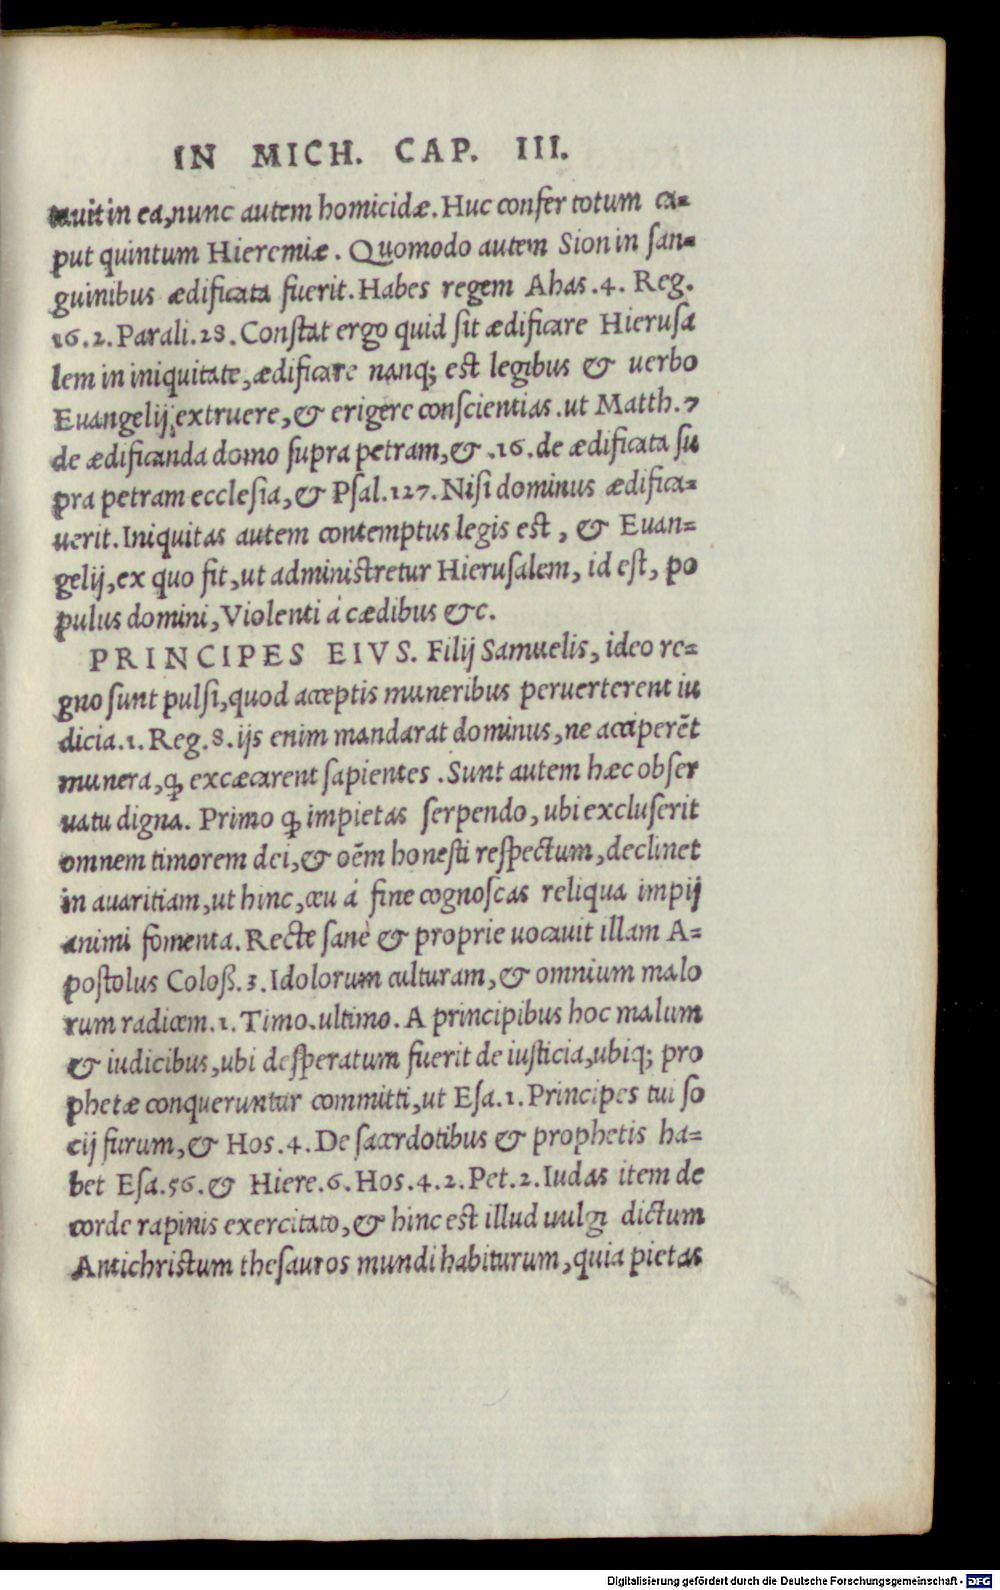 IN MICH. CAP. III.
tauit in ea, nunc autem homicidæ. Huc confer totum ca-
put quintum Hieremiæ. Quomodo autem Sion in ſan-
guinibus ædificata fuerit. Habes regem Ahas .4. Reg.
16.2. Parali.28. Conſtat ergo quid ſit ædificare Hieruſa
lem in iniquitate, ædificare nanq; est legibus & uerbo
Euangelij extruere, & erigere conſcientias. ut Matth.7
de ædificanda domo ſupra petram, & .16. de ædificata ſu
pra petram eccleſia, & Pſal.127. Niſi dominus ædifica-
uerit. Iniquitas autem contemptus legis est, & Euan-
gelij, ex quo fit, ut administretur Hieruſalem, id eſt, po
pulus domini, Violenti á cædibus &c.
PRINCIPES EIVS. Filij Samuelis, ideo re-
gno ſunt pulſi, quod acceptis muneribus peruerterent iu
dicia.1. Reg.8. ijs enim mandarat dominus, ne acciperẽt
munera, ꝙ excæcarent ſapientes. Sunt autem hæc obſer
uatu digna. Primo ꝙ impietas ſerpendo, ubi excluſerit
omnem timorem dei, & oẽm honeſti reſpectum, declinet
in auaritiam, ut hinc, ceu á fine cognoſcas reliqua impij
animi fomenta. Recte ſanè & proprie uocauit illam A-
poſtolus Coloß.3. Idolorum culturam, & omnium malo
rum radicem.1. Timo. ultimo. A principibus hoc malum
& iudicibus, ubi deſperatum fuerit de iuſticia, ubiq; pro
phetæ conqueruntur committi, ut Eſa.1. Principes tui ſo
cij furum, & Hos.4. De ſacerdotibus & prophetis ha-
bet Eſa.56. & Hiere.6. Hos.4.2. Pet.2. Iudas item de
corde rapinis exercitato, & hinc est illud uulgi dictum
Antichristum theſauros mundi habiturum, quia pietas
Digitalisierung gefördert durch die Deutsche Forschungsgemeinschaft - DFG